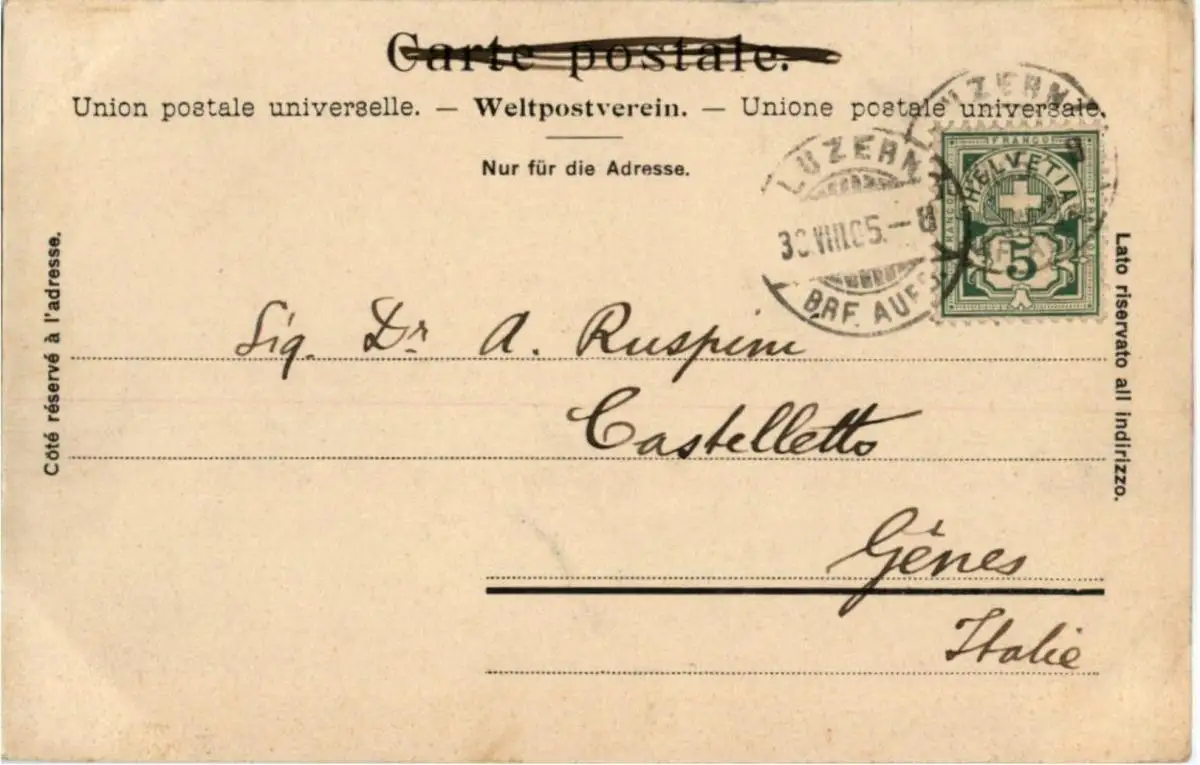 Carte postale.
Union postale universelle. — Weltpostverein. — Unione postale universale.
Nur für die Adresse.
LUZERN
LUZERN
VIII.05.–8
BRF. AUFG.
FRANCO
HELVETIA
5
Côté réservé à l'adresse.
Lato riservato all indirizzo.
Sig. Dr A. Ruspini
Castelletto
Gênes
Italie